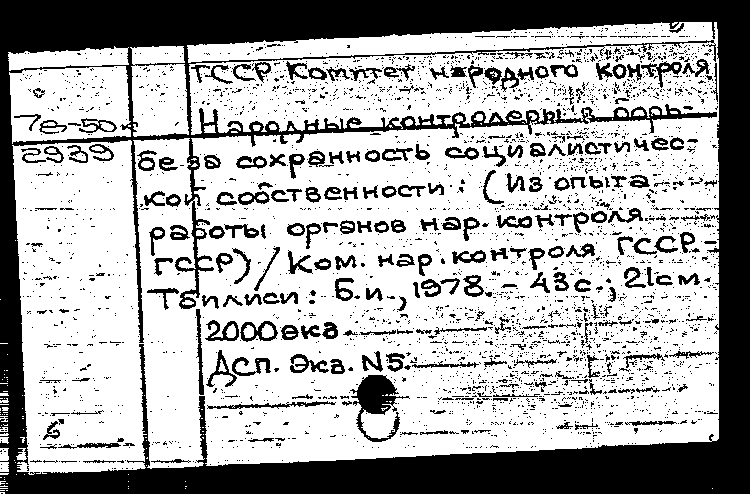 ГССР. Комитет народного контроля
7е-50к
Народные контролеры в борь-
2939
бе за сохранность социалистичес-
кой собственности: (Из опыта
работы органов нар. контроля
ГССР) / Ком. нар. контроля ГССР.-
Тбилиси: Б.и., 1978. - 43с.; 21см.
2000экз
ДСП. Экз. N5.